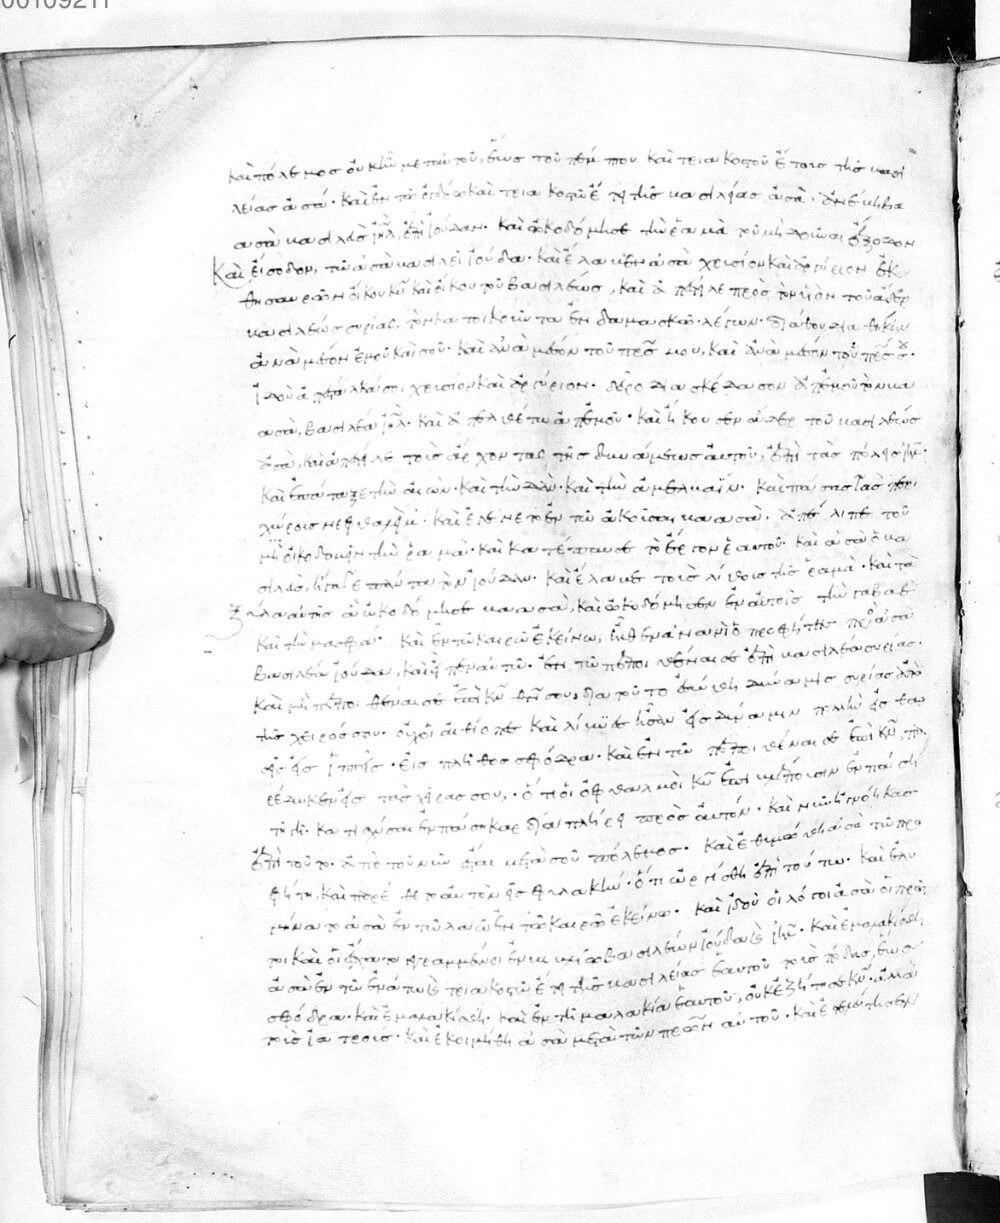 00109211
καὶ πόλεμος οὐκ ἦν μετ' αὐτοῦ, ἕως τοῦ πέμπτου καὶ τριακοστοῦ ἔτους τῆς βασι
λείας ἀσά· καὶ ἐν τῶ ὀγδόω καὶ τριακοστῶ ἔτει τῆς βασιλείας ἀσὰ· ἀνέβη βα
ασὰ βασιλεὺς ἰηλ, ἐπὶ ἰούδαν· καὶ ὠκοδόμησε τὴν ῥαμὰ τοῦ μὴ δοῦναι ἔξοδον
Καὶ εἴσοδον, τῶ ἀσὰ βασιλεῖ ἰούδα· καὶ ἔλαβεν ἀσὰ χρυσίον καὶ ἀργύριον ἐκ
θησαυρῶν οἴκου κυ καὶ οἴκου τοῦ βασιλέως, καὶ ἀπέστειλε πρὸς τὸν υἱὸν τοῦ ἄδερ
βασιλέως συρίας, τὸν κατοικοῦντα ἐν δαμασκῶ· λέγων· διάθου διαθήκην
ἀνὰ μέσον ἐμοῦ καὶ σοῦ· καὶ ἀνὰ μέσον τοῦ πρς μου, καὶ ἀνὰ μέσον τοῦ πρς σου·
ἰδοὺ ἀπέσταλκά σοι χρυσίον καὶ ἀργύριον· δεῦρο διασκέδασον ἀπ' ἐμοῦ τὸν βα
ασὰ, βασιλέα ἰηλ· καὶ ἀπελθέτω ἀπ' ἐμοῦ· καὶ ἤκουσεν ἄδερ τοῦ βασιλέως
ἀσὰ, καὶ ἀπέστειλε τοὺς ἄρχοντας τῆς δυνάμεως αὐτοῦ, ἐπὶ τὰς πόλεις ἰηλ·
καὶ ἐπάταξε τὴν αἰών· καὶ τὴν δὰν· καὶ τὴν ἀμελμαΐν· καὶ πάσας τὰς περι
χώρους νεφθαλείμ· καὶ ἐγένετο ἐν τῶ ἀκοῦσαι βαασὰ, ἀπέλιπε τοῦ
μὴ οἰκοδομεῖν τὴν ῥαμὰ· καὶ κατέπαυσε τὸ ἔργον ἑαυτοῦ· καὶ ἀσὰ ὁ βα
σιλεὺς, ἔλαβε πάντα τὸν ἰούδαν· καὶ ἔλαβε τοὺς λίθους τῆς ῥαμὰ· καὶ τὰ
ξύλα αὐτῆς ἃ ὠκοδόμησε βαασὰ, καὶ ὠκοδόμησεν ἐν αὐτοῖς τὴν γαβαὲ
καὶ τὴν μασφα· καὶ ἐν τῶ καιρῶ ἐκείνω, ἦλθεν ἀνανὶ ὁ προφήτης πρὸς ἀσὰ
βασιλέα ἰούδα, καὶ εἶπεν αὐτῶ· ἐν τῶ πεποιθέναι σε ἐπὶ βασιλέα συρίας·
καὶ μὴ πεποιθέναι σε ἐπὶ κν θν σου, διὰ τοῦτο ἐσώθη δύναμις συρίας ἀπὸ
τῆς χειρός σου· οὐχ οἱ αἰθίοπες καὶ λίβυες ἦσαν εἰς δύναμιν πολλὴν εἰς θαρ
σος εἰς ἱππεῖς· εἰς πλῆθος σφόδρα· καὶ ἐν τῶ πεποιθέναι σε ἐπὶ κν, πα
ρέδωκεν εἰς τὰς χεῖρας σου, ὅτι οἱ ὀφθαλμοὶ κυ ἐπιβλέπουσιν ἐν πάση
τῆ γῆ· κατισχῦσαι ἐν πάση καρδία πλήρει πρὸς αὐτόν· καὶ νῦν ἠγνόηκας
ἐπὶ τούτω· ἀπὸ τοῦ νῦν ἔσται μετὰ σοῦ πόλεμος· καὶ ἐθυμώθη ἀσὰ τῶ προ
φήτη, καὶ παρέθετο αὐτὸν εἰς φυλακὴν· ὅτι ὠργίσθη ἐπὶ τούτω· καὶ ἐλυ
μήνατο ἀσὰ ἐν τῶ λαῶ ἐν τῶ καιρῶ ἐκείνω· καὶ ἰδοὺ οἱ λόγοι ἀσὰ οἱ πρῶ
τοι καὶ οἱ ἔσχατοι γεγραμμένοι ἐν βιβλίω βασιλέων ἰούδα καὶ ἰηλ· καὶ ἐμαλακίσθη
ἀσὰ ἐν τῶ ἐνάτω καὶ τριακοστῶ ἔτει τῆς βασιλείας ἑαυτοῦ τοὺς πόδας, ἕως
σφόδρα· καὶ ἐμαλακίσθη· καὶ ἐν τῆ μαλακία ἑαυτοῦ, οὐκ ἐζήτησε κν· ἀλλὰ
τοὺς ἰατρούς· καὶ ἐκοιμήθη ἀσὰ μετὰ τῶν πρων αὐτοῦ· καὶ ἐτελεύτησεν